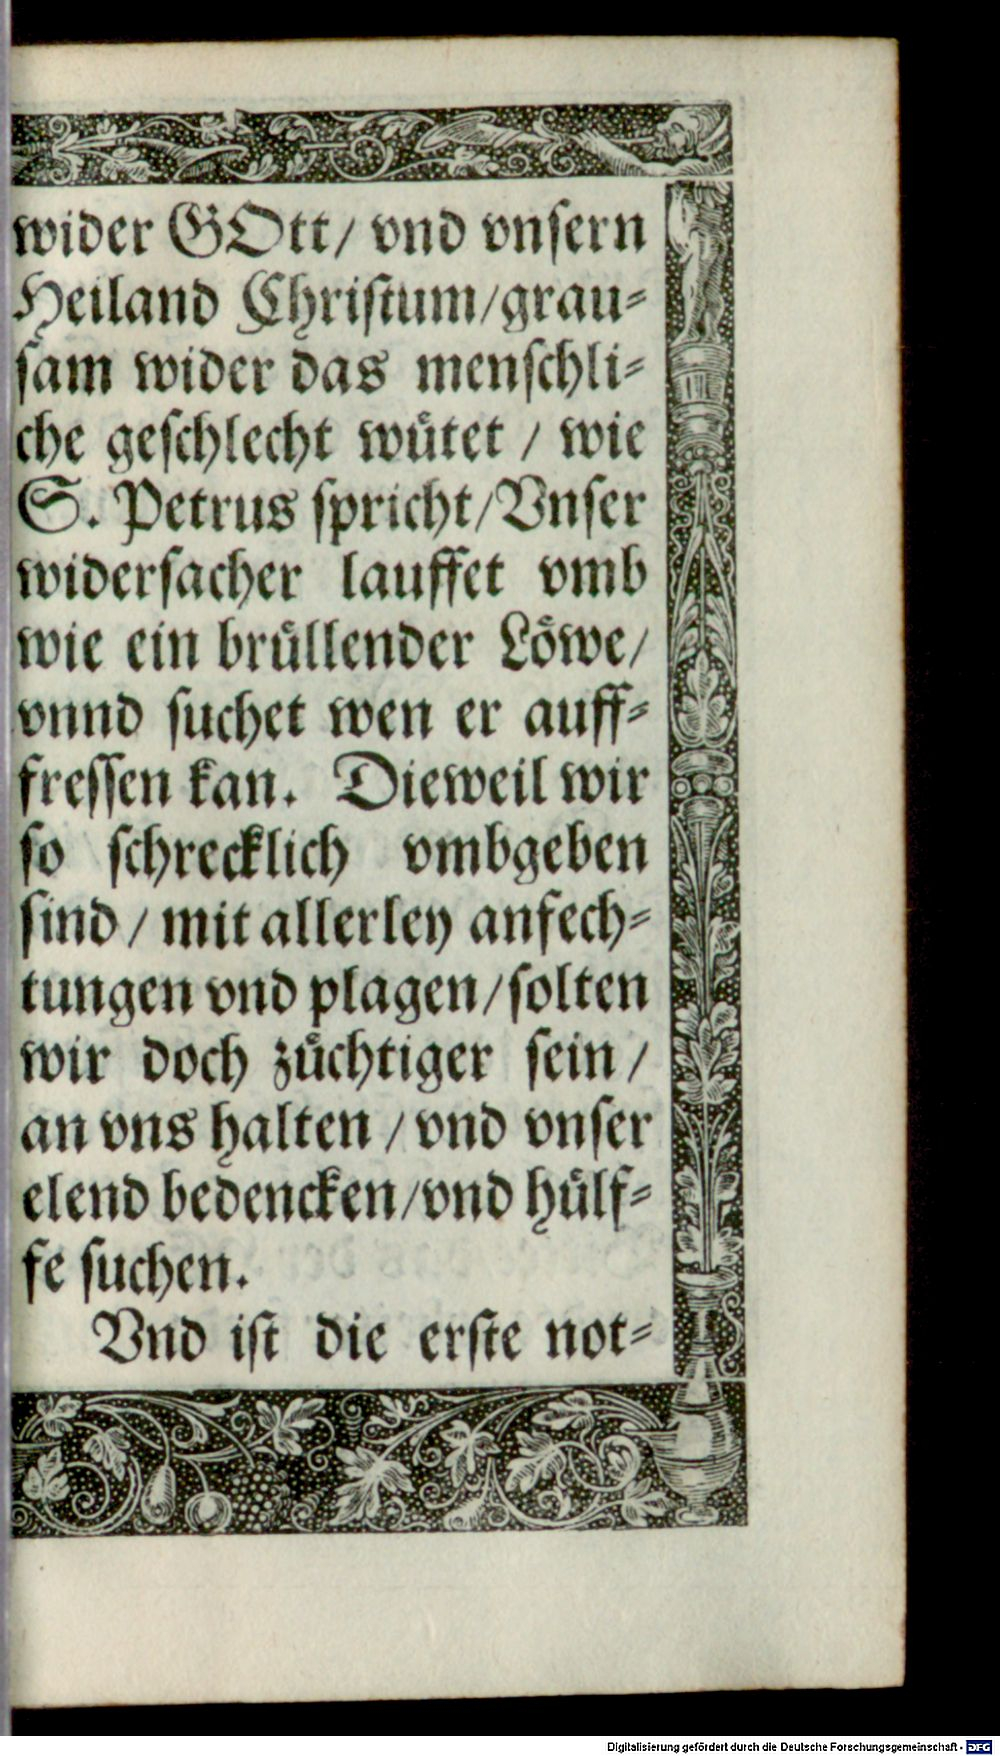 wider GOtt/ vnd vnſern
Heiland Chriſtum/grau⸗
ſam wider das menſchli⸗
che geſchlecht wuͤtet / wie
S. Petrus ſpricht/Vnſer
widerſacher lauffet vmb
wie ein bruͤllender Loͤwe/
vnnd ſuchet wen er auff⸗
freſſen kan. Dieweil wir
ſo ſchrecklich vmbgeben
ſind / mit allerley anfech⸗
tungen vnd plagen/ſolten
wir doch zuͤchtiger ſein /
an vns halten / vnd vnſer
elend bedencken/vnd huͤlf⸗
fe ſuchen.
Vnd iſt die erſte not⸗
Digitalisierung gefördert durch die Deutsche Forschungsgemeinschaft - DFG